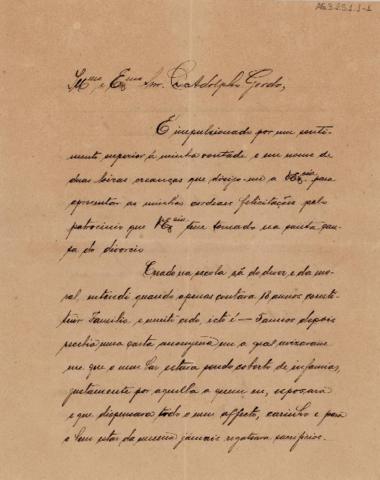 AG3.251.1-1
Illmo e Exmo Snr. Dr Adolpho Gordo,
É impulsionado por um senti-
mento superior á minha vontade e em nome de
duas loiras creanças que dirijo-me a V Excia para
apresentar as minhas cordeaes felicitações pelo
patrocinio que V Excia tem tomado na santa cau-
pa do divorcio
Creado na escola sã do dever e da mo-
ral, entendi quando apenas contava 18 annos consti-
tuir Familia e muito cedo, isto é — 7 annos depois
recebia uma carta anonyma em a qual avizavam
me que o meu Lar estava sendo coberto de infamias,
justamente por aquella a quem eu, esposara
e que dispensara todo o meu affecto, carinho e para
o bem estar da mesma jámais regateara sacrificios.